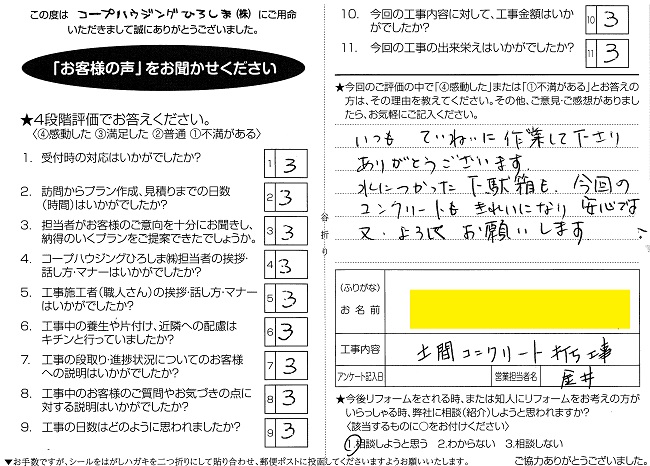 この度は コープハウジングひろしま㈱ にご用命
いただきまして誠にありがとうございました。
「お客様の声」をお聞かせください
★4段階評価でお答えください。
〈④感動した ③満足した ②普通 ①不満がある〉
1. 受付時の対応はいかがでしたか?
1 3
2. 訪問からプラン作成、見積りまでの日数
(時間)はいかがでしたか?
2 3
3. 担当者がお客様のご意向を十分にお聞きし、
納得のいくプランをご提案できたでしょうか。
3 3
4. コープハウジングひろしま㈱担当者の挨拶・
話し方・マナーはいかがでしたか?
4 3
5. 工事施工者(職人さん)の挨拶・話し方・マナー
はいかがでしたか?
5 3
6. 工事中の養生や片付け、近隣への配慮は
キチンと行っていましたか?
6 3
7. 工事の段取り・進捗状況についてのお客様
への説明はいかがでしたか?
7 3
8. 工事中のお客様のご質問やお気づきの点に
対する説明はいかがでしたか?
8 3
9. 工事の日数はどのように思われましたか?
9 3
谷折り
10. 今回の工事内容に対して、工事金額はいか
がでしたか?
10 3
11. 今回の工事の出来栄えはいかがでしたか?
11 3
★今回のご評価の中で「④感動した」または「①不満がある」とお答え
の方は、その理由を教えてください。その他、ご意見・ご感想がありまし
たら、お気軽にご記入ください。
いつも ていねいに 作業して下さり
ありがとうございます。
水につかった 下駄箱も、今回の
コンクリートも きれいになり 安心です
又、よろしく お願いします
(ふりがな)
お名前
工事内容 土間コンクリート 打ち工事
アンケート記入日
営業担当者名
★今後リフォームをされる時、または知人にリフォームをお考えの方が
いらっしゃる時、弊社に相談(紹介)しようと思われますか?
〈該当するものに○をお付けください〉
1.相談しようと思う 2.わからない 3.相談しない
▼お手数ですが、シールをはがしハガキを二つ折りにして貼り合わせ、郵便ポストに投函してくださいますようお願いいたします。
ご協力ありがとうございました。